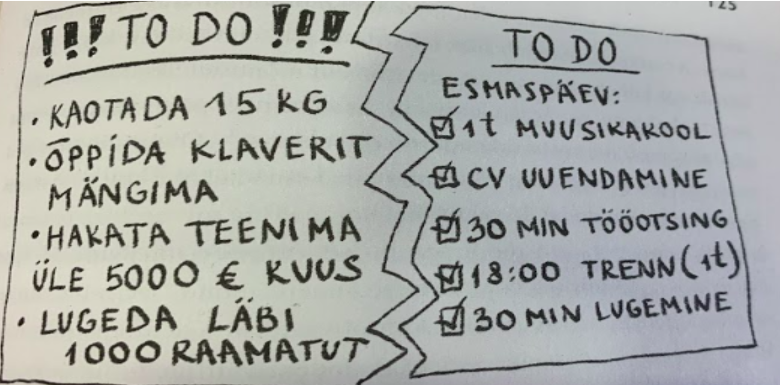 125
!!! TO DO !!!
• KAOTADA 15 KG
• ÕPPIDA KLAVERIT
MÄNGIMA
• HAKATA TEENIMA
ÜLE 5000 € KUUS
• LUGEDA LÄBI
1000 RAAMATUT
TO DO
ESMASPÄEV:
☑ 1t MUUSIKAKOOL
☑ CV UUENDAMINE
☑ 30 MIN TÖÖOTSING
☑ 18:00 TRENN (1t)
☑ 30 MIN LUGEMINE